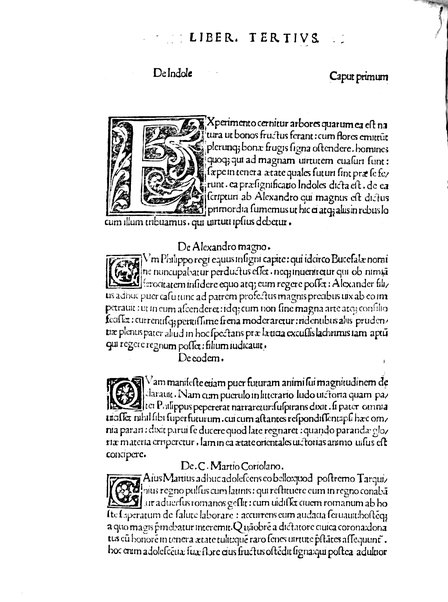 LIBER. TERTIVS.
De Indole
Caput primum
EXperimento cernitur arbores quarum ea est na
tura ut bonos fructus ferant: cum flores emittūt
plerunq; bonæ frugis signa ostendere. homines
quoq; qui ad magnam uirtutem euasuri sunt:
sæpe in tenera ætate quales futuri sint præ se fe
runt. ea præsignificatio Indoles dicta est. de ea
scripturi ab Alexandro qui magnus est dictus
primordia sumemus ut hic ei atq; aliis in rebus lo
cum illum tribuamus. qui uirtuti ipsius debetur.
De Alexandro magno.
CVm Philippo regi equus insigni capite: qui idcirco Bucefalæ nomi
ne nuncupabatur perductus esset. neq; inueniretur qui ob nimiā
ferocitatem insidere equo atq; eum regere posset: Alexander fili
us adhuc puer casu tunc ad patrem profectus magnis precibus uix ab eo im
petrauit: ut in eum ascenderet: idq; cum non sine magna arte atq; consilio
fecisset: currensq; peritissime frena moderaretur: ridentibus aliis pruden
tiæ plenus pater aliud in hoc spectans præ lætitia excussis lachrimis tam aptū
qui regere regnum posset: filium iudicauit.
De eodem.
QVam manifeste etiam puer futuram animi sui magnitudinem de
clarauit. Nam cum puerulo in litterario ludo uictoria quam pa
ter Philippus pepererat narraretur: suspirans dixit. si pater omnia
uicisset nihil sibi superfuturum. cui cum astantes respondissent: apS hæc om
nia parari: dixit parui se ducere quod late regnaret: quando parandæ glo
riæ materia eriperetur. Iam in ea ætate orientales uictorias animo uisus est
concipere.
De. C. Martio Coriolano.
CAius Martius adhuc adolescens eo bello: quod postremo Tarqui
nius regno pulsus cum latinis: qui restituere eum in regno conabā
tur aduersus romanos gessit: cum uidisset ciuem romanum ab ho
ste separatum de salute laborare: accurrens cum audacia seruauit: hostēq;
a quo magis p̄mebatur interemit. Quāobrē a dictatore ciuica corona dona
tus cū honorē in tenera ætate tulit: quē raro senes uirtute p̄stātes assequunt̃.
hoc enim adolescētiæ suæ flore eius fructus ostēdit signa: qui postea adulto